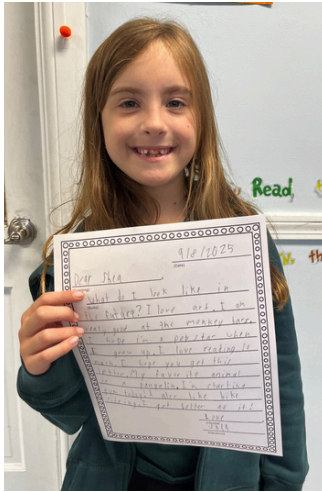 Read,
9/8/2025
Dear Shea
What do I look like in
the future? I love art. I am
really good at the monkey bars.
hope I'm a pop star when
grow up. I love reading so
much. I hope you get this
letter. My favorite animal
is a I'm starting
today! I also like bike
get better at it!
Love
Shea